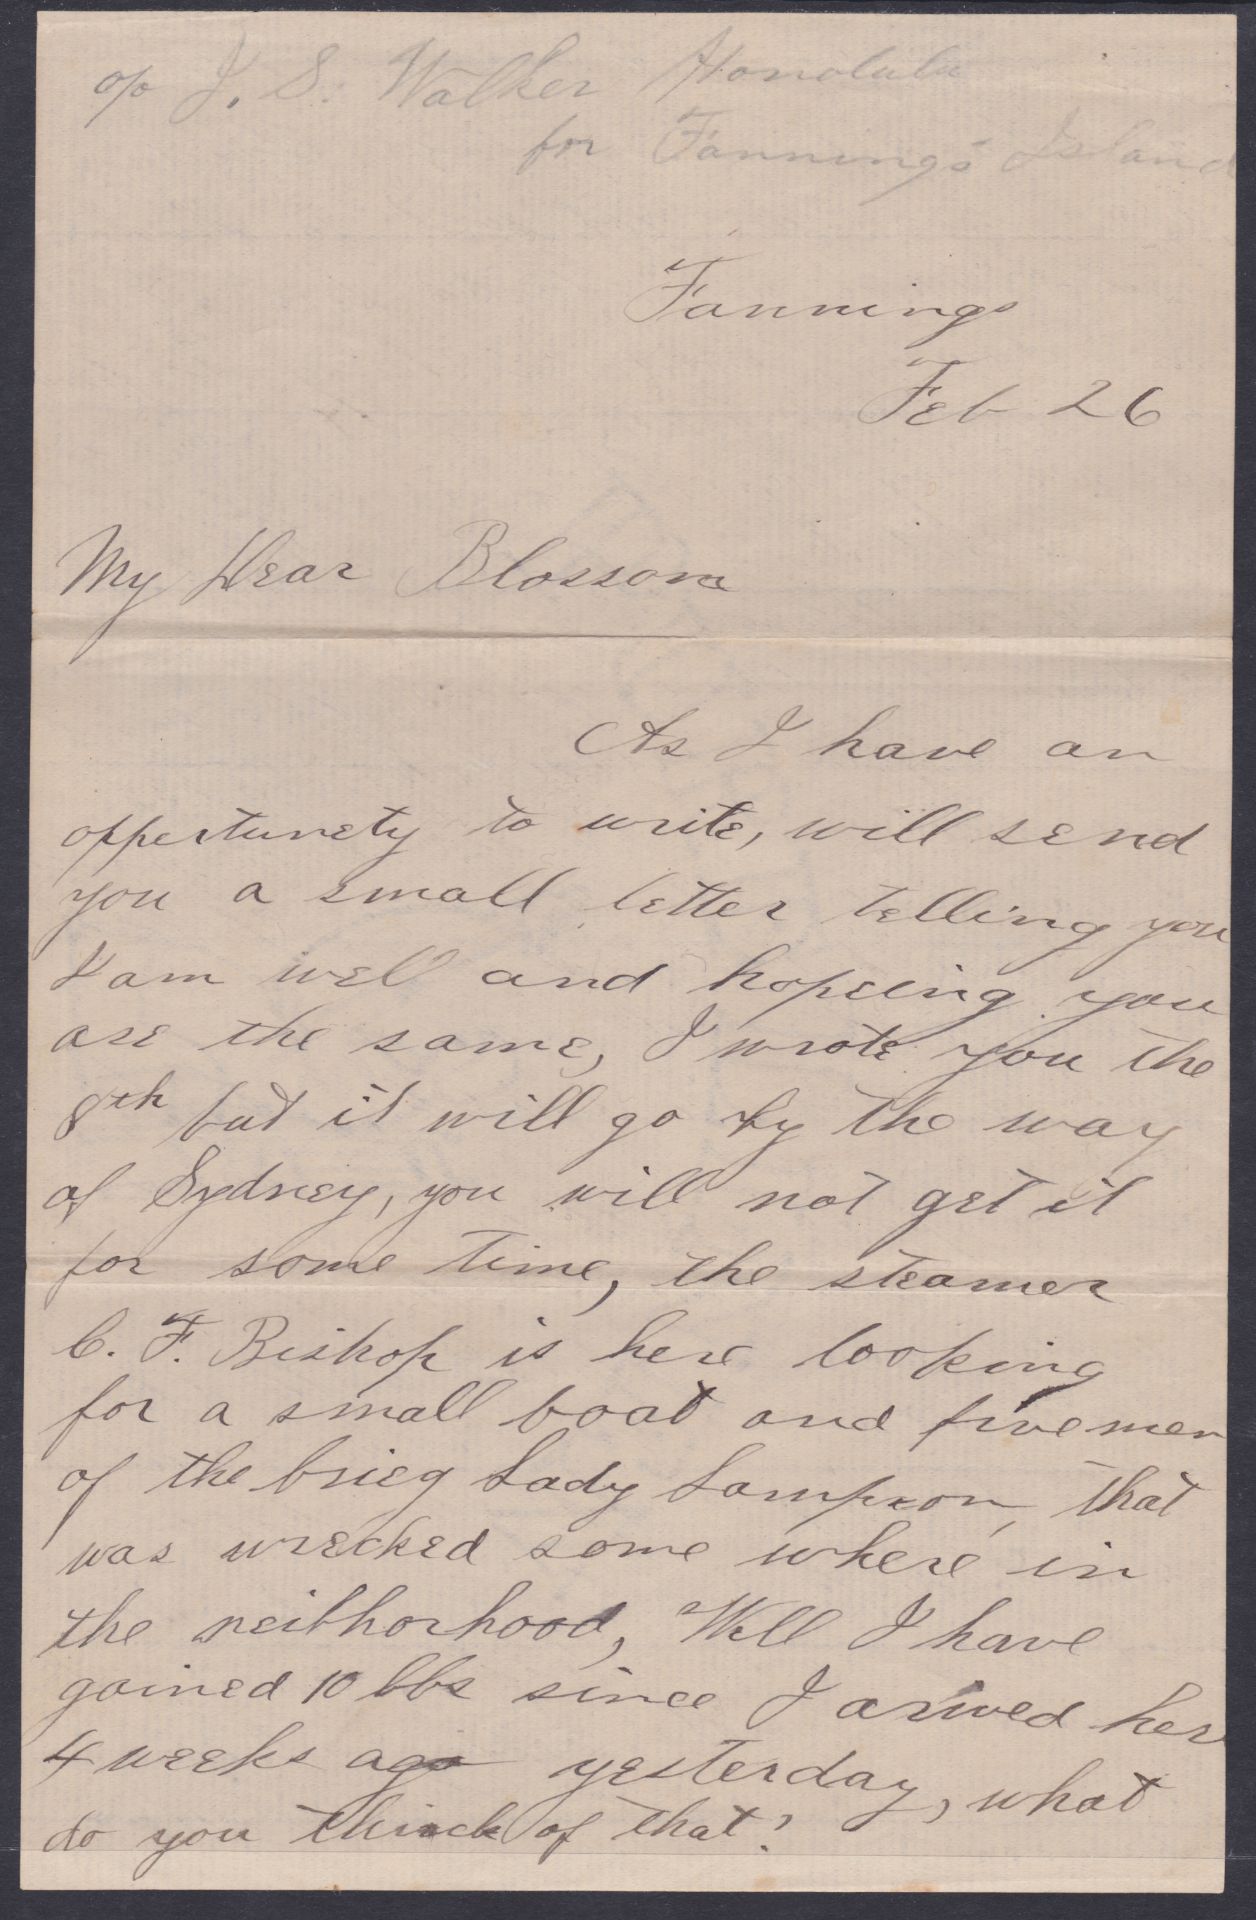 c/o J. S. Walker Honolulu
for Fanning's Island
Fannings
Feb 26
My Dear Blossom
As I have an
oppertunety to write, will send
you a small letter telling you
I am well and hopeing you
are the same, I wrote you the
8th but it will go by the way
of Sydney, you will not get it
for some time, the steamer
C. F. Bishop is here looking
for a small boat and five men
of the brieg Lady Lampson, that
was wrecked some where in
the neibhorhood, Well I have
gained 10 lbs since I arived her
4 weeks ago yesterday, what
do you thinck of that?